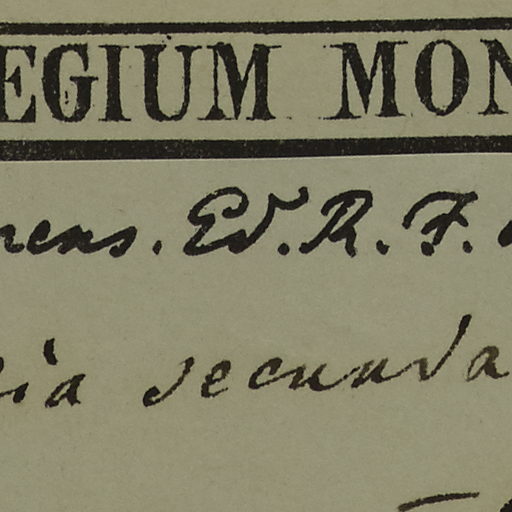 EGIUM MON
rens. Ed. R. F.
ia secunda